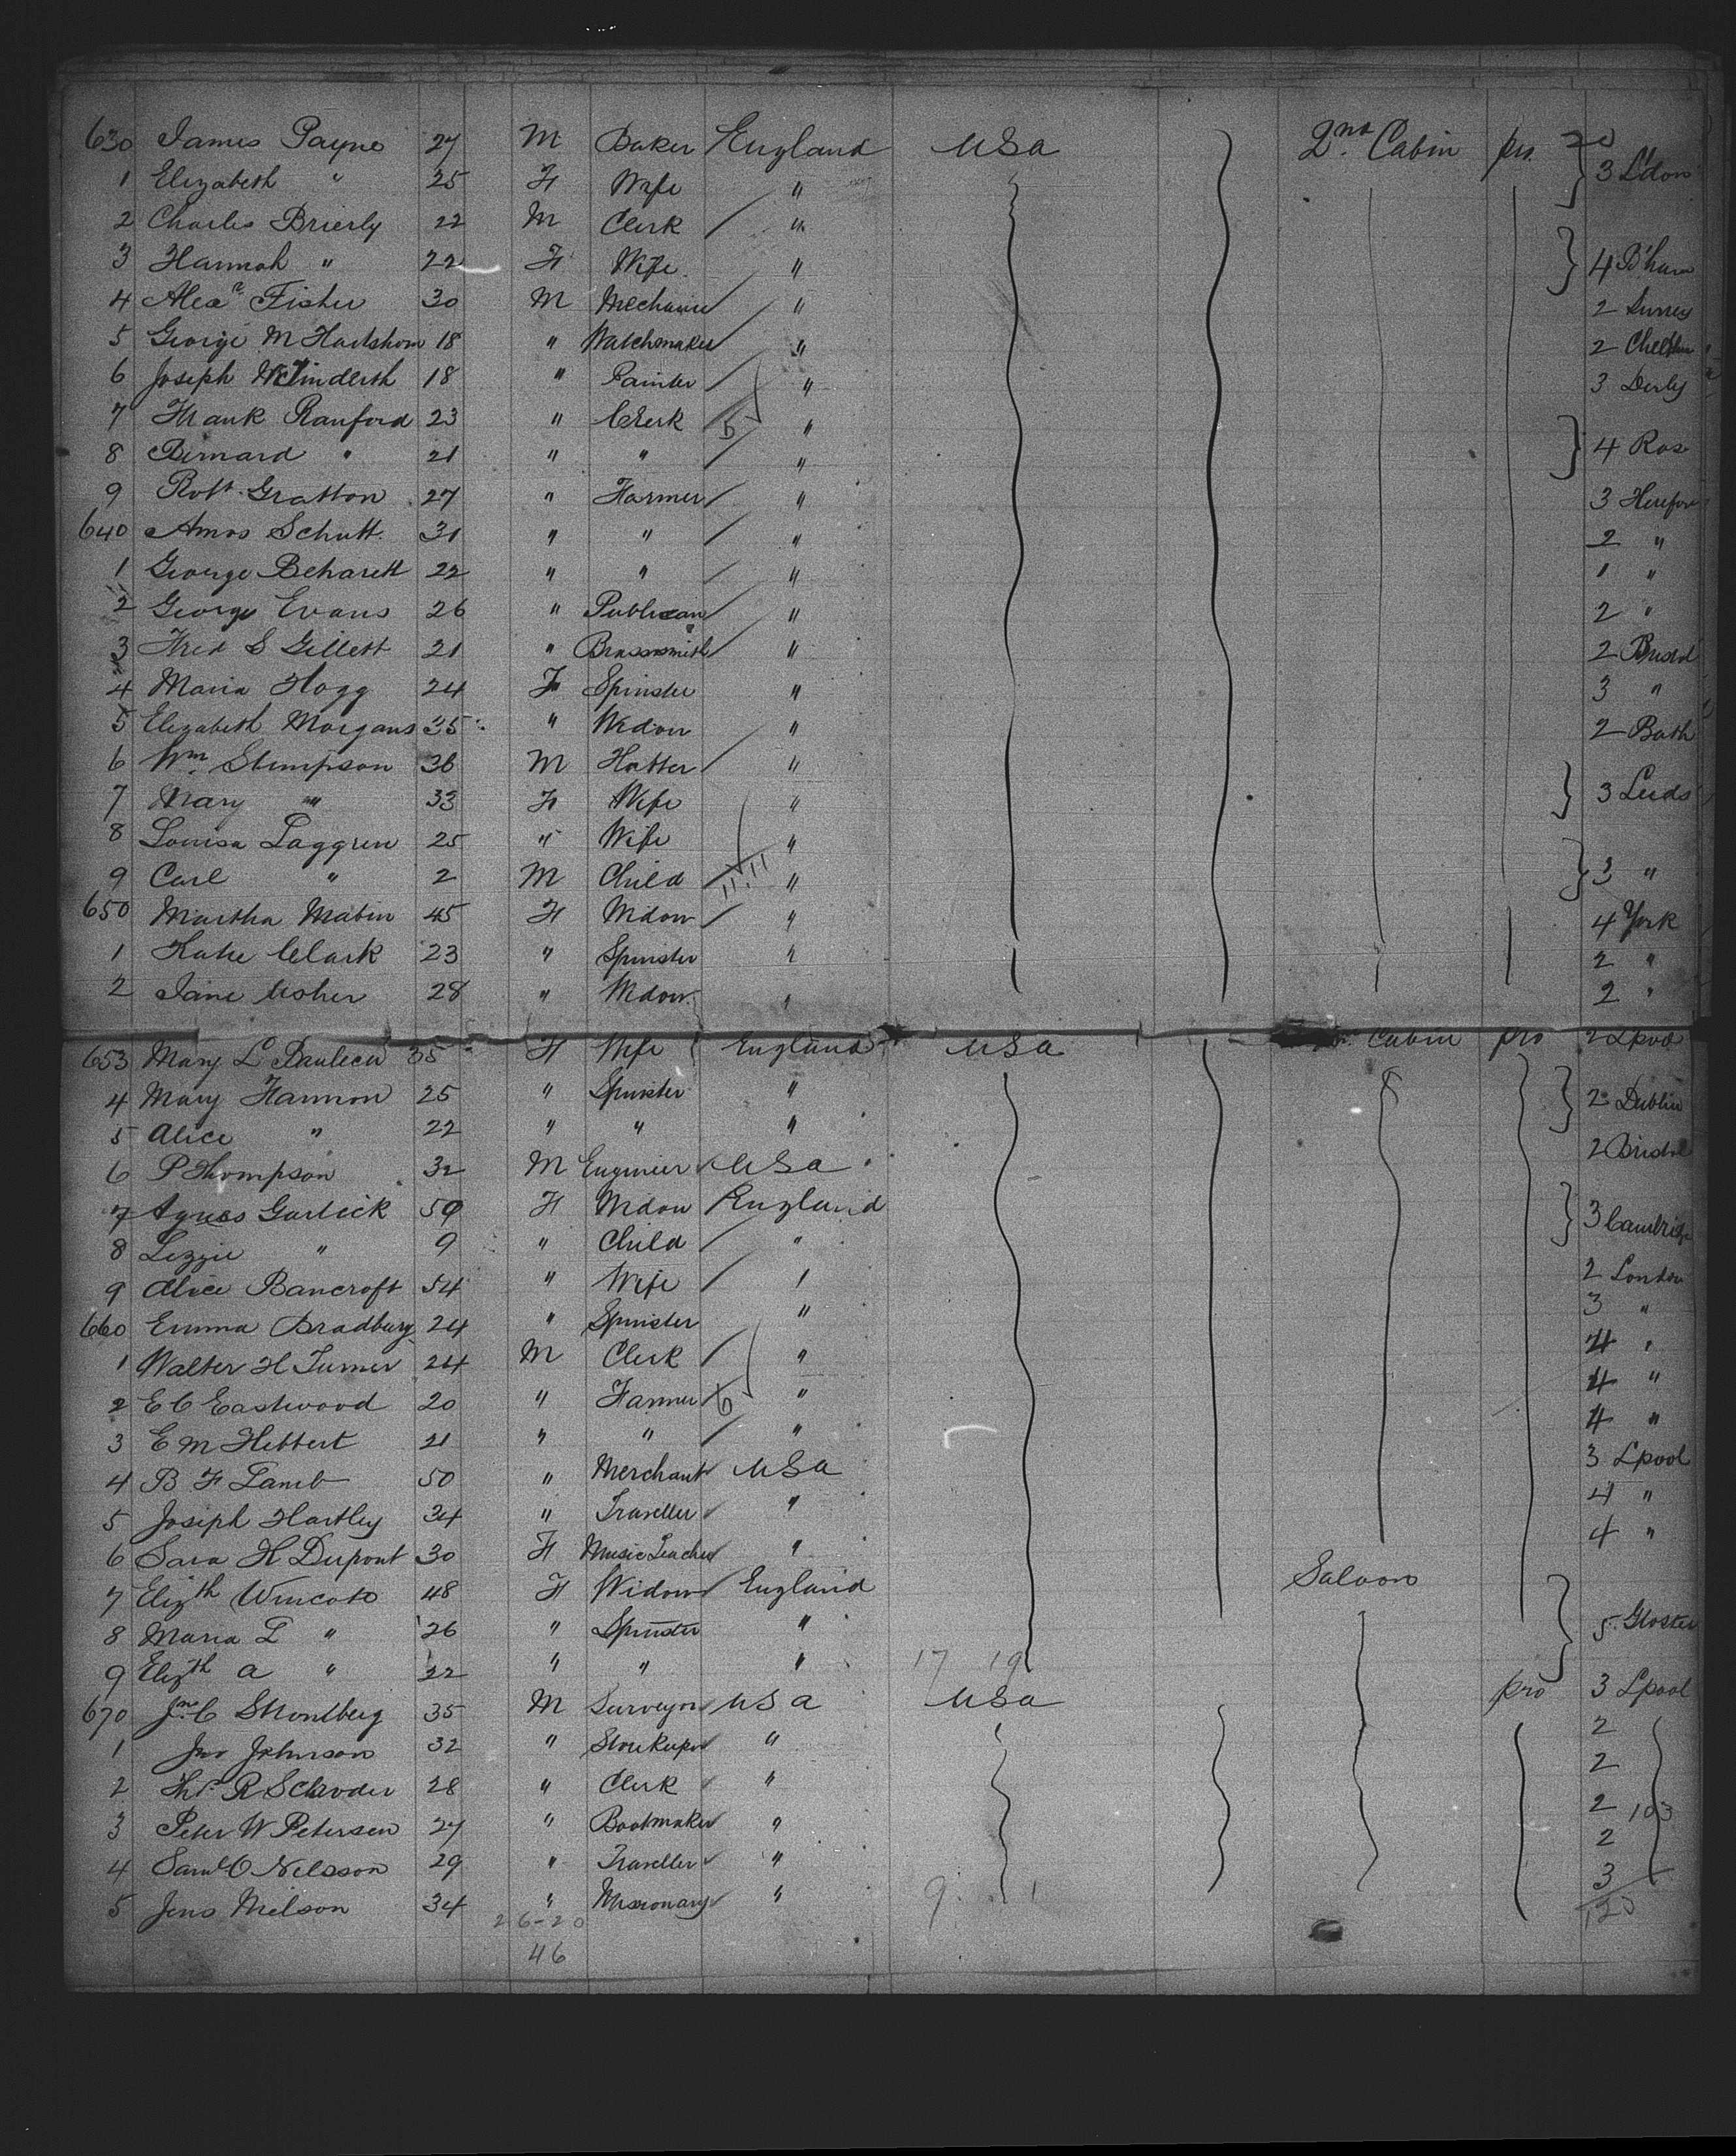 630 James Payne 27 M Baker England USA 2nd Cabin pro 20
1 Elizabeth " 25 F Wife " 3 L'don
2 Charles Brierly 22 M Clerk "
3 Hannah " 22 F Wife " 4 B'ham
4 Alexr Fisher 30 M Mechanic " 2 Surrey
5 George M Hartshorn 18 " Watchmaker " 2
6 Joseph 18 " Painter " 3 Derby
7 Frank Ranford 23 " Clerk 5 "
8 Bernard " 21 " " " 4 Ros
9 Robt Gratton 27 " Farmer " 3 Herefor
640 Amos Schutt 31 " " " 2 "
1 George 22 " " " 1 "
2 George Evans 26 " Publican " 2 "
3 Fred S Gillett 21 " Brassmith " 2 Bristol
4 Maria Hogg 24 F Spinster " 3 "
5 Elizabeth Morgans 35 " Widow " 2 Bath
6 Wm Stimpson 36 M Hatter "
7 Mary " 33 F Wife " 3 Leeds
8 Louisa Laggren 25 " Wife "
9 Carl " 2 M Child 11.11 " 3 "
650 Martha Mabin 45 F Widow " 4 York
1 Katie Clark 23 " Spinster " 2 "
2 Jane Usher 28 " Widow " 2 "
653 Mary L 35 F Wife England USA Cabin pro 2 Lpool
4 Mary Hannon 25 " Spinster " 2 Dublin
5 Alice " 22 " " "
6 P Thompson 32 M Engineer USA 2 Bristol
7 Agnes Garlick 59 F Widow England
8 Lizzie " 9 " Child " 3 Cambridge
9 Alice Bancroft 54 " Wife " 2 London
660 Emma Bradbury 24 " Spinster " 3 "
1 Walter H Turner 24 M Clerk " 4 "
2 E C Eastwood 20 " Farmer 6 " 4 "
3 E M Hebbert 21 " " " 4 "
4 B F Lamb 50 " Merchant USA 3 Lpool
5 Joseph Hartley 34 " Traveller " 4 "
6 Sara H Dupont 30 F Music Teacher " 4 "
7 Elizth Wincote 48 F Widow England Saloon
8 Maria L " 26 " Spinster " 5 Gloster
9 Elizth A " 22 " " " 17 19
670 Jno C 35 M Surveyor USA USA pro 3 Lpool
1 Jno Johnson 32 " Storekeeper " 2
2 Thos R Schroder 28 " Clerk " 2
3 Peter W Petersen 27 " Bootmaker " 2 103
4 Saml O Nelsson 29 " Traveller " 2
5 Jens Nielson 34 " Missionary " 9 1 3
26-20 120
46